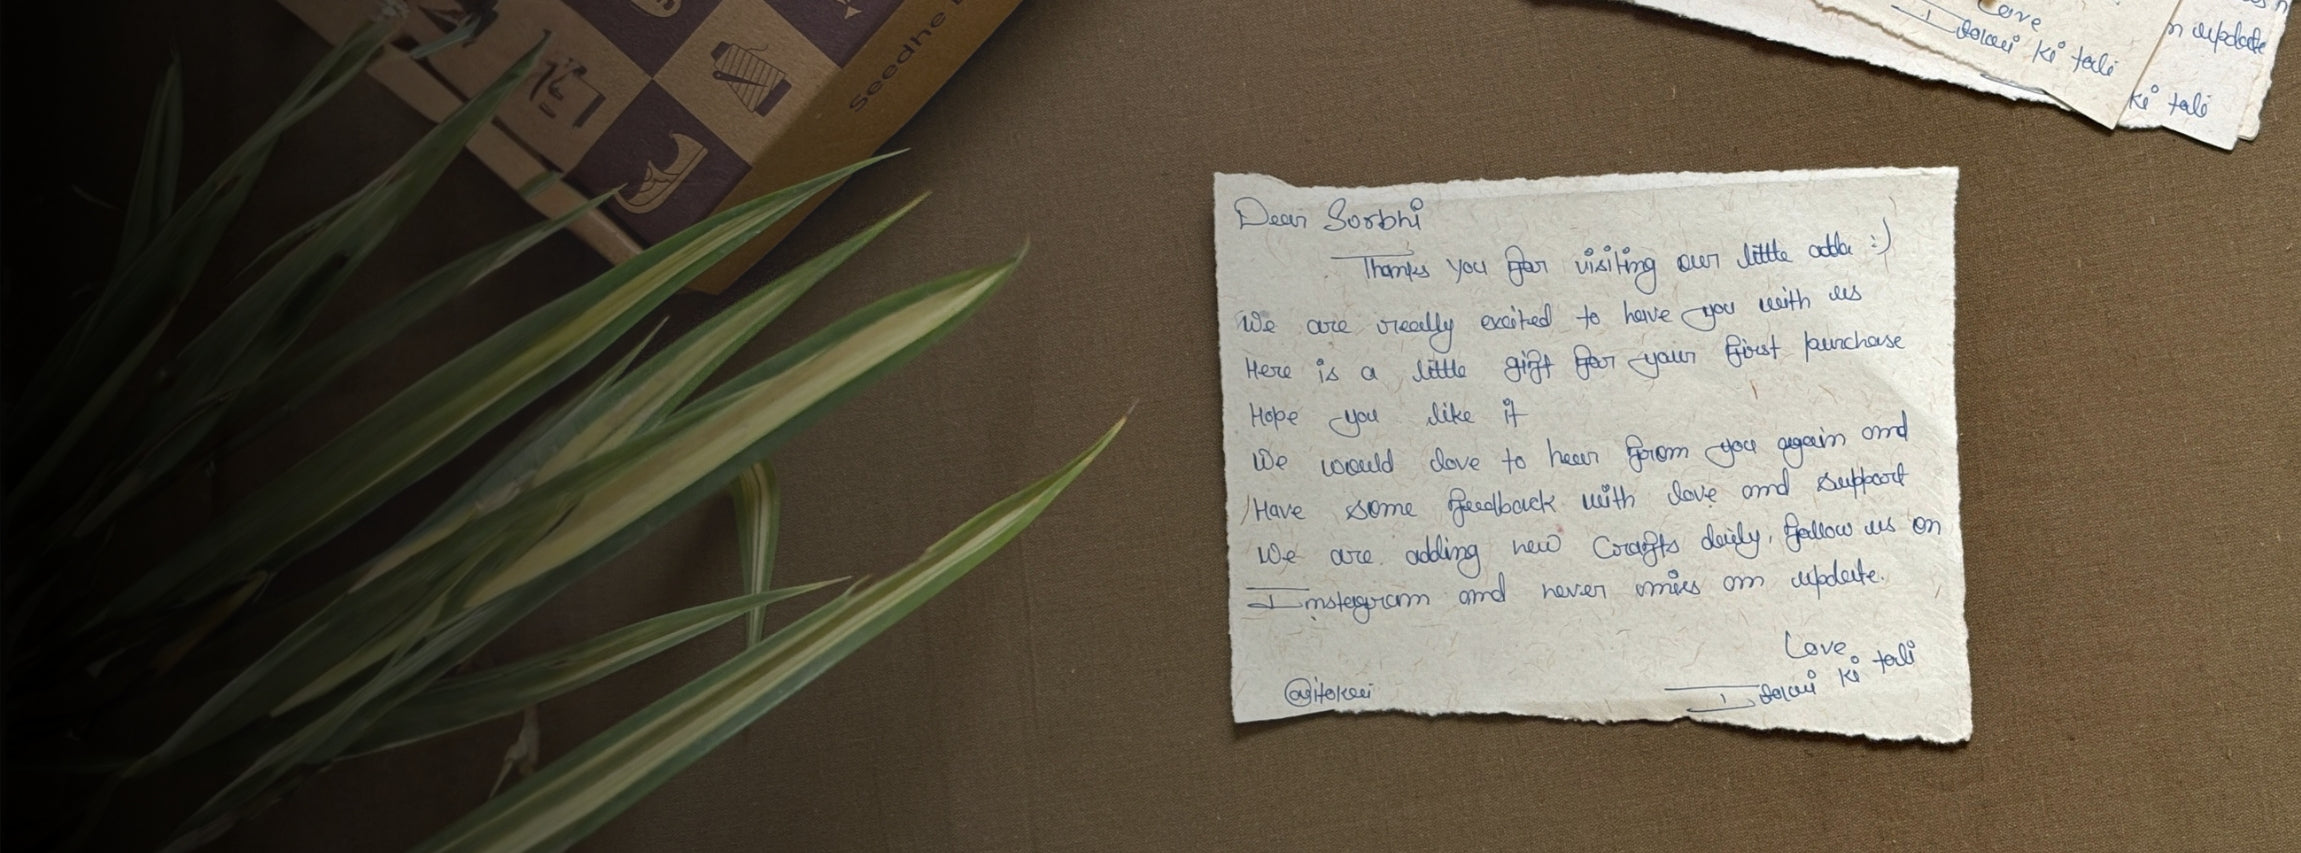 Seedhe
Love
ki tali
n update
ki tali
Dear Sorbhi
Thanks you for visiting our little adda :)
We are really excited to have you with us
Here is a little gift for your first purchase
Hope you like it
We would love to hear from you again and
Have some feedback with love and support
We are adding new Crafts daily, follow us on
Instagram and never miss an update.
Love
ki tali